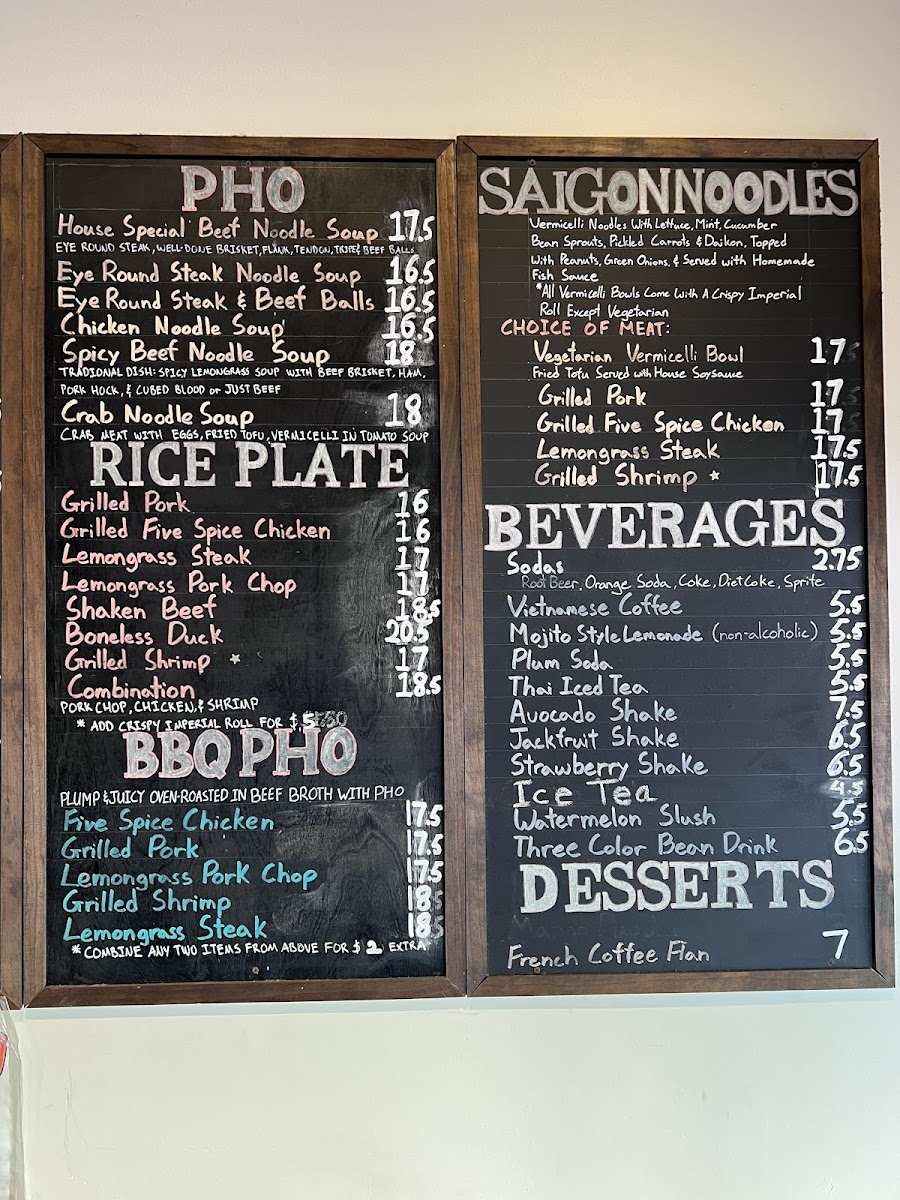 PHO
House Special Beef Noodle Soup 17.5
EYE ROUND STEAK, WELL-DONE BRISKET, FLANK, TENDON, TRIPE & BEEF BALLS
Eye Round Steak Noodle Soup 16.5
Eye Round Steak & Beef Balls 16.5
Chicken Noodle Soup 16.5
Spicy Beef Noodle Soup 18
TRADIONAL DISH: SPICY LEMONGRASS SOUP WITH BEEF BRISKET, HAM,
PORK HOCK, & CUBED BLOOD or JUST BEEF
Crab Noodle Soup 18
CRAB MEAT WITH EGGS, FRIED TOFU, VERMICELLI IN TOMATO SOUP
RICE PLATE
Grilled Pork 16
Grilled Five Spice Chicken 16
Lemongrass Steak 17
Lemongrass Pork Chop 17
Shaken Beef 18.5
Boneless Duck 20.5
Grilled Shrimp * 17
Combination 18.5
PORK CHOP, CHICKEN, & SHRIMP
* ADD CRISPY IMPERIAL ROLL FOR $5
BBQ PHO
PLUMP & JUICY OVEN-ROASTED IN BEEF BROTH WITH PHO
Five Spice Chicken 17.5
Grilled Pork 17.5
Lemongrass Pork Chop 17.5
Grilled Shrimp 18
Lemongrass Steak 18
* COMBINE ANY TWO ITEMS FROM ABOVE FOR $2 EXTRA
SAIGON NOODLES
Vermicelli Noodles With Lettuce, Mint, Cucumber
Bean Sprouts, Pickled Carrots & Daikon, Topped
With Peanuts, Green Onions, & Served with Homemade
Fish Sauce
*All Vermicelli Bowls Come With A Crispy Imperial
Roll Except Vegetarian
CHOICE OF MEAT:
Vegetarian Vermicelli Bowl 17
Fried Tofu Served with House Soysauce
Grilled Pork 17
Grilled Five Spice Chicken 17
Lemongrass Steak 17.5
Grilled Shrimp * 17.5
BEVERAGES
Sodas 2.75
Root Beer, Orange Soda, Coke, Diet Coke, Sprite
Vietnamese Coffee 5.5
Mojito Style Lemonade (non-alcoholic) 5.5
Plum Soda 5.5
Thai Iced Tea 5.5
Avocado Shake 7.5
Jackfruit Shake 6.5
Strawberry Shake 6.5
Ice Tea 4.5
Watermelon Slush 5.5
Three Color Bean Drink 6.5
DESSERTS
French Coffee Flan 7